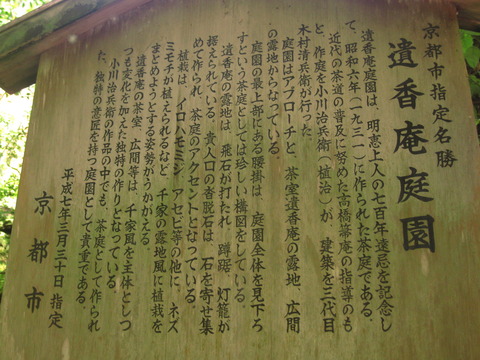 京都市指定名勝
遺香庵庭園
遺香庵庭園は、明恵上人の七百年遠忌を記念し
て、昭和六年(一九三一)に作られた茶庭である。
近代の茶道の普及に努めた高橋箒庵の指導のも
と、作庭を小川治兵衛(植治)が、建築を三代目
木村清兵衛が行った。
庭園はアプローチと、茶室遺香庵の露地、広間
の露地からなっている。
庭園の最上部にある腰掛は、庭園全体を見下ろ
すという茶庭としては珍しい構図をしている。
遺香庵の露地は、飛石が打たれ、蹲踞、灯籠が
据えられている。貴人口の者脱石は、石を寄せ集
めて作られ、茶庭のアクセントとなっている。
植栽は、イロハモミジ、アセビ等の他に、ネズ
ミモチが植えられるなど、千家の露地風に植栽を
まとめようとする姿勢がうかがえる。
遺香庵の茶室、広間等は、千家風を主体としつ
つも変化を加えた独特の作りとなっている。
小川治兵衛の作品の中でも、茶庭として作られ
た、独特の意匠を持つ庭園として貴重である。
平成七年三月三十日 指定
京都市